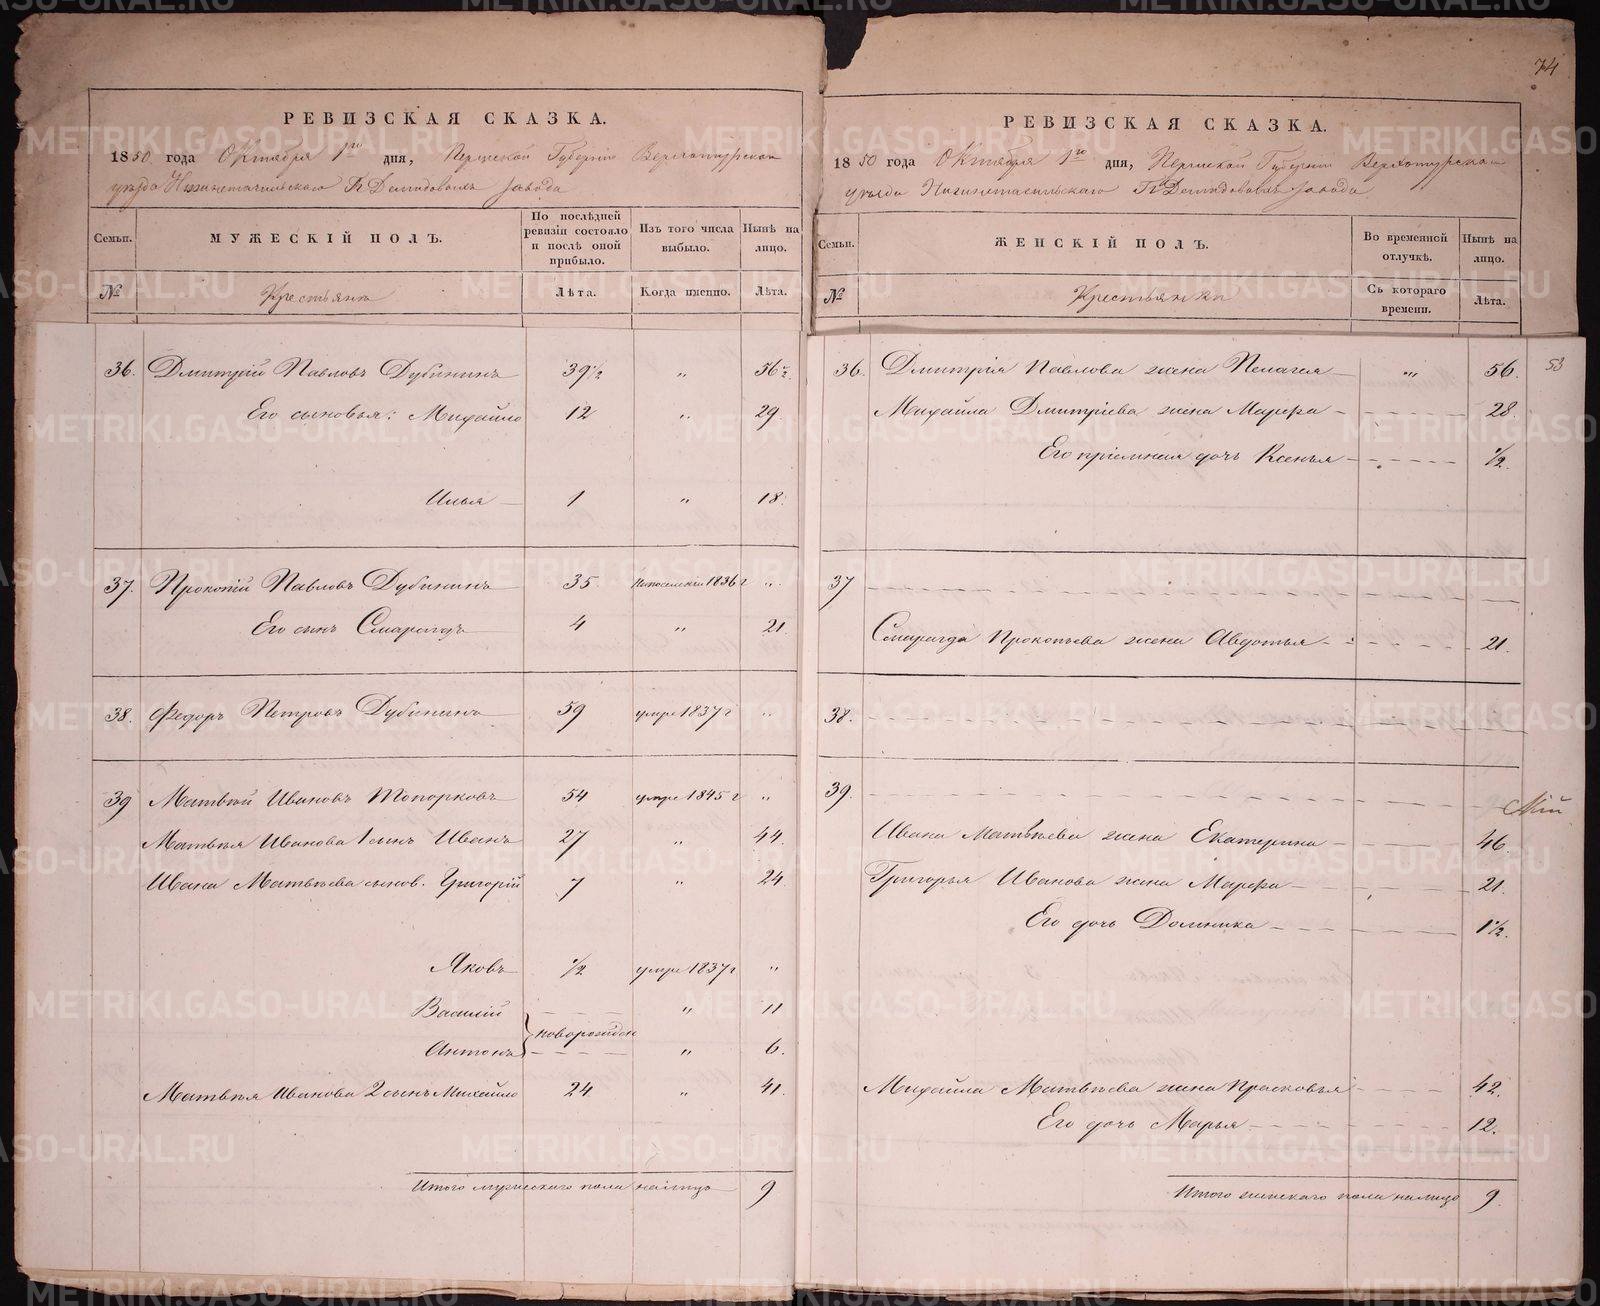 74
РЕВИЗСКАЯ СКАЗКА.
1850 года Октября 1го дня, Пермской Губернии Верхотурскаго
уѣзда Нижнетагильскаго Гг. Демидовыхъ завода
Семьи. МУЖЕСКІЙ ПОЛЪ. По послѣдней ревизіи состояло и послѣ оной прибыло. Изъ того числа выбыло. Нынѣ на лицо.
№ Крестьяне Лѣта. Когда именно. Лѣта.
36. Дмитрій Павловъ Дубининъ 39½ " 56½
Его сыновья: Михайло 12 " 29.
Илья 1 " 18.
37. Прокопій Павловъ Дубининъ 35 1836 г "
Его сынъ Смарагдъ 4 " 21.
38. Федоръ Петровъ Дубининъ 59 умре 1837 г "
39 Матвѣй Ивановъ Топорковъ 54 умре 1845 г "
Матвѣя Иванова 1 сынъ Иванъ 27 " 44.
Ивана Матвѣева сынов. Григорій 7 " 24.
Яковъ ½ умре 1837 г "
Василій " 11
новорожден
Антонъ " 6.
Матвѣя Иванова 2 сынъ Михайло 24 " 41.
Итого мужескаго пола налицо 9
РЕВИЗСКАЯ СКАЗКА.
1850 года Октября 1го дня, Пермской Губернии Верхотурскаго
уѣзда Нижнетагильскаго Гг. Демидовыхъ завода
Семьи. ЖЕНСКІЙ ПОЛЪ. Во временной отлучкѣ. Нынѣ на лицо.
№ Крестьянки Съ котораго времени. Лѣта.
36. Дмитрія Павлова жена Пелагея " 56. 53
Михайла Дмитріева жена Марфа 28.
Его пріемная дочь Ксенья ½.
37
Смарагда Прокопьева жена Авдотья 21.
38.
39.
Ивана Матвѣева жена Екатерина 46.
Григорья Иванова жена Марфа 21.
Его дочь Домника 1½.
Михайла Матвѣева жена Прасковья 42.
Его дочь Марья 12.
Итого женскаго пола налицо 9.
METRIKI.GASO-URAL.RU